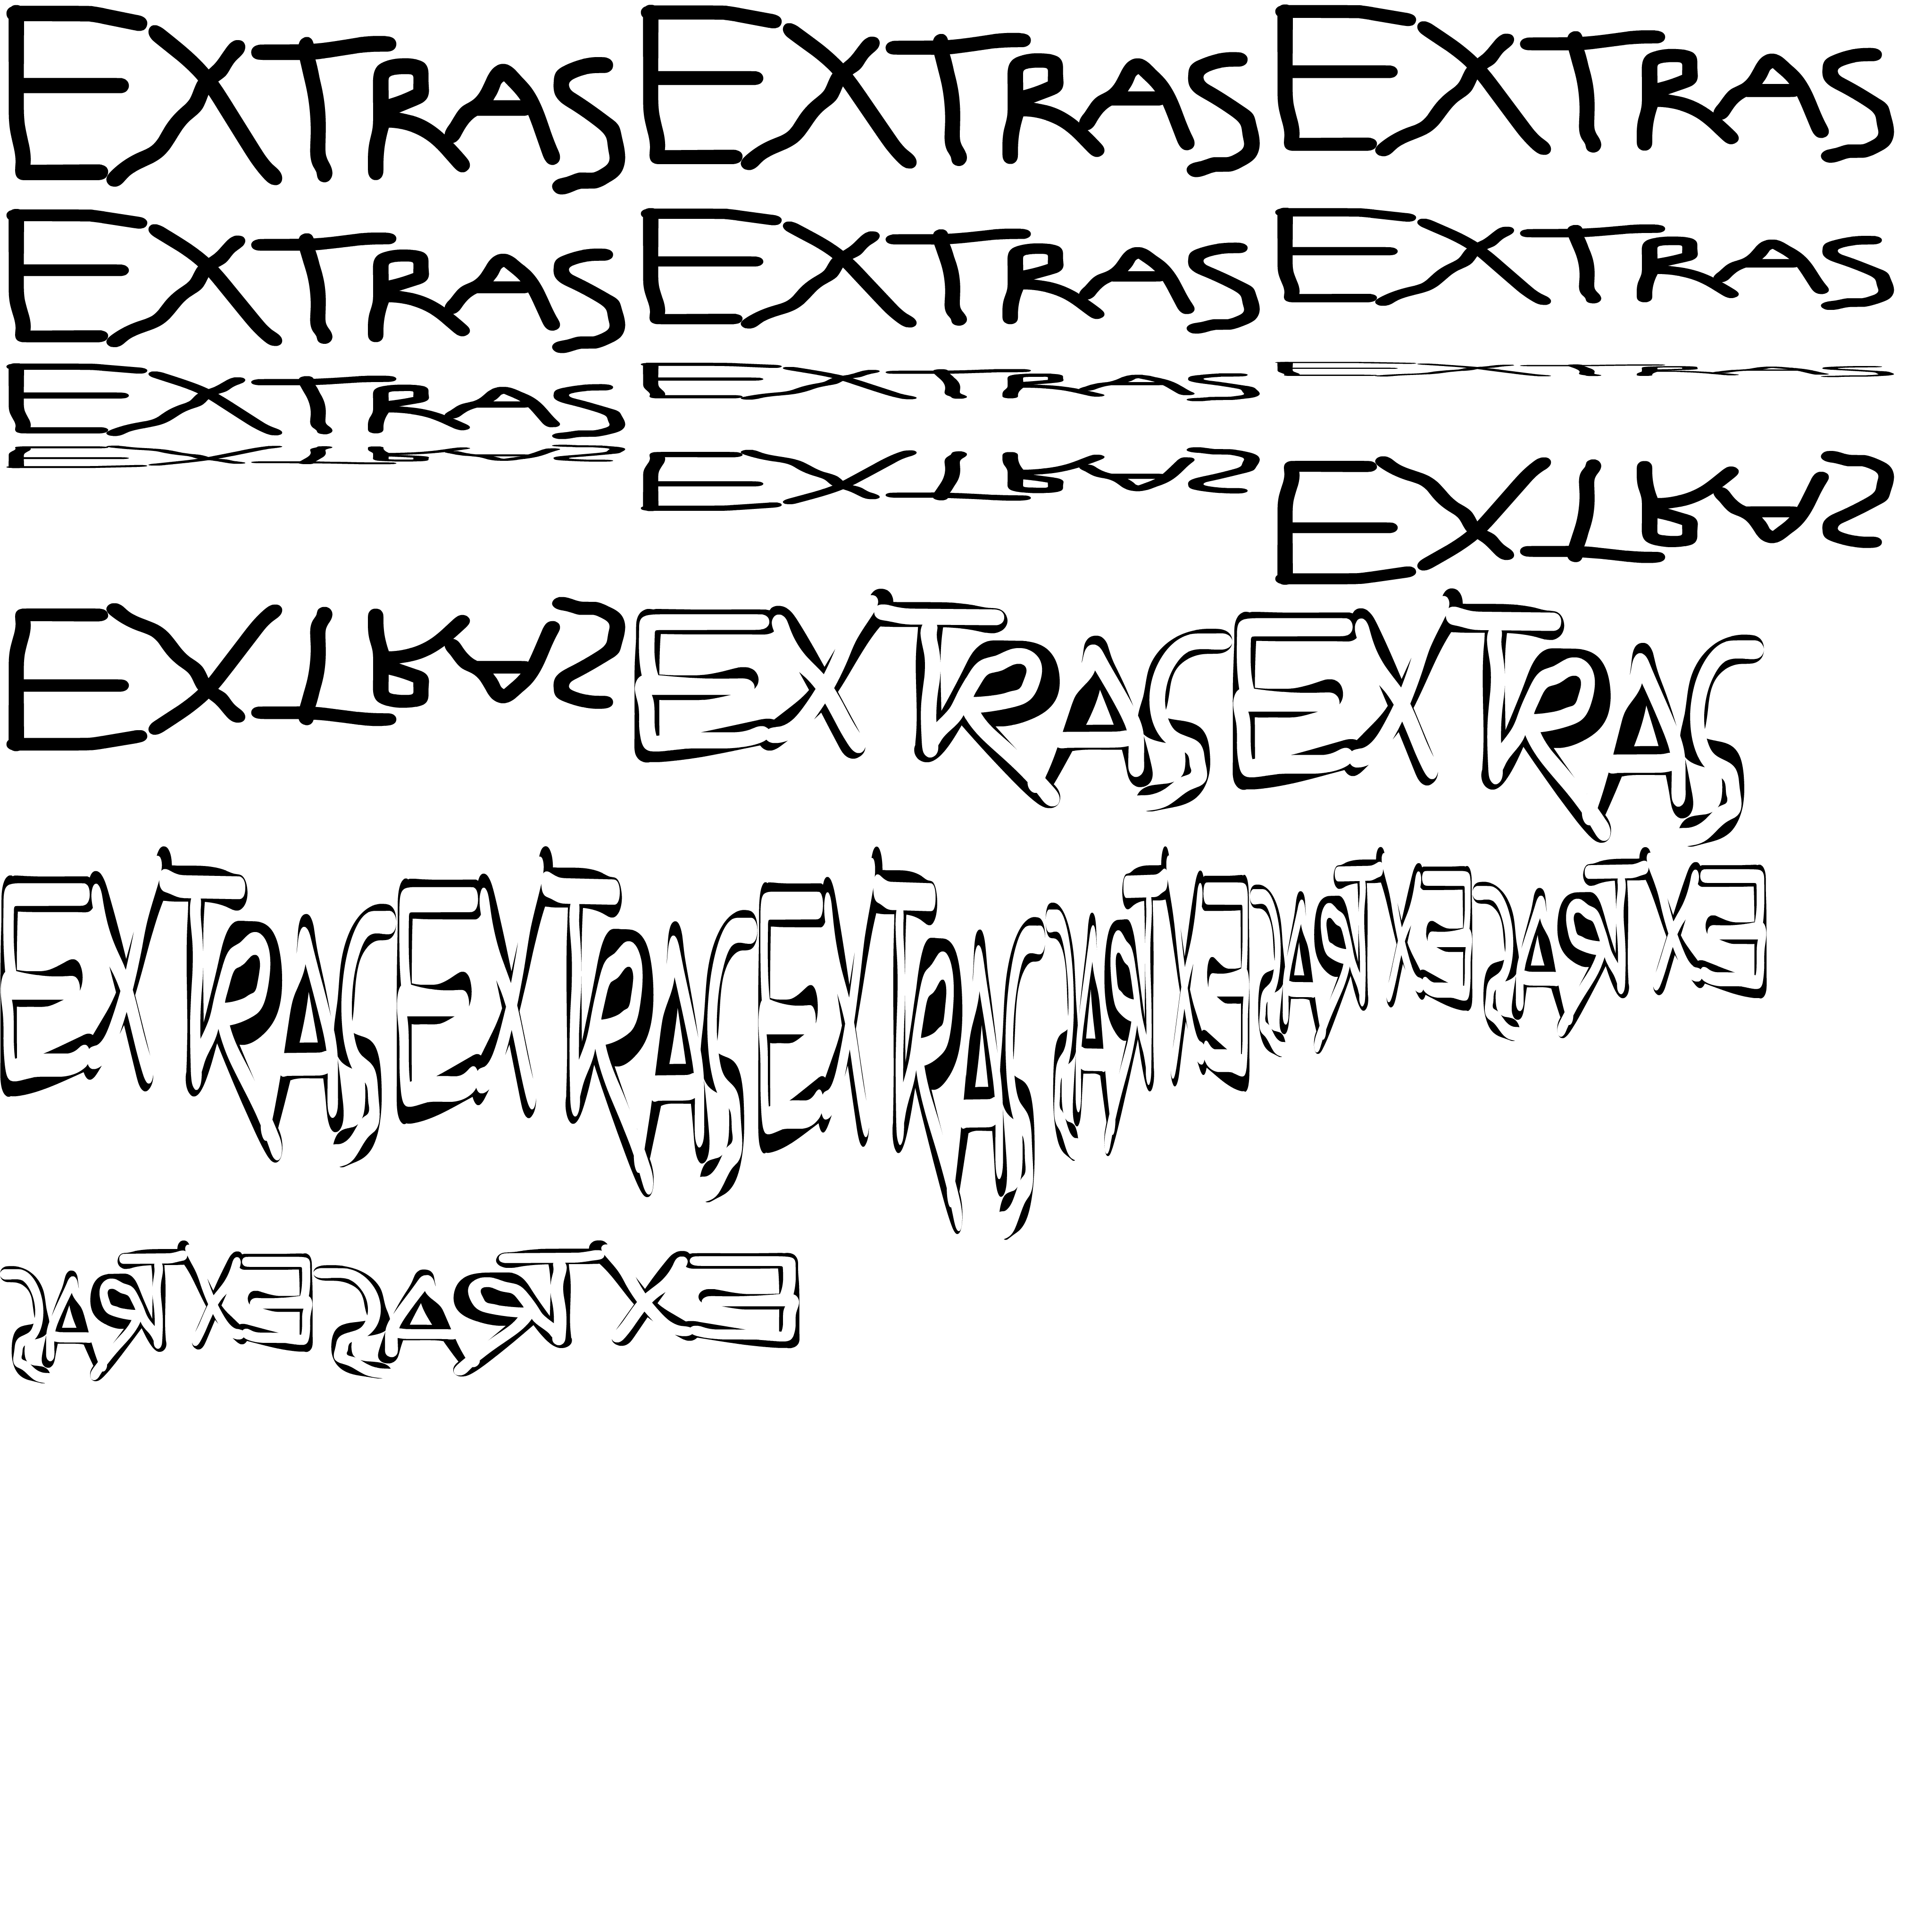 EXTRAS EXTRAS EXTRAS
EXTRAS EXTRAS EXTRAS
EXTRAS EXTRAS EXTRAS
EXTRAS EXTRAS EXTRAS
EXTRAS EXTRAS EXTRAS
EXTRAS EXTRAS EXTRAS EXTRAS EXTRAS EXTRAS
EXTRAS EXTRAS